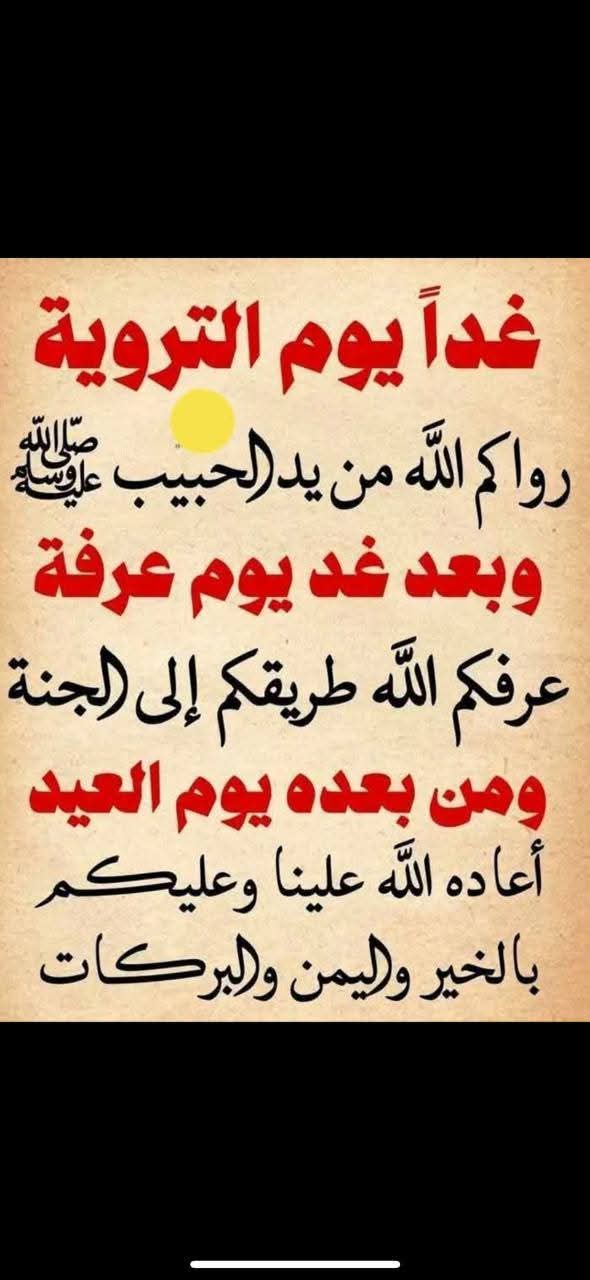 غداً يوم التروية
رواكم الله من يد الحبيب ﷺ
وبعد غد يوم عرفة
عرفكم الله طريقكم إلى الجنة
ومن بعده يوم العيد
أعاده الله علينا وعليكم
بالخير واليمن والبركات